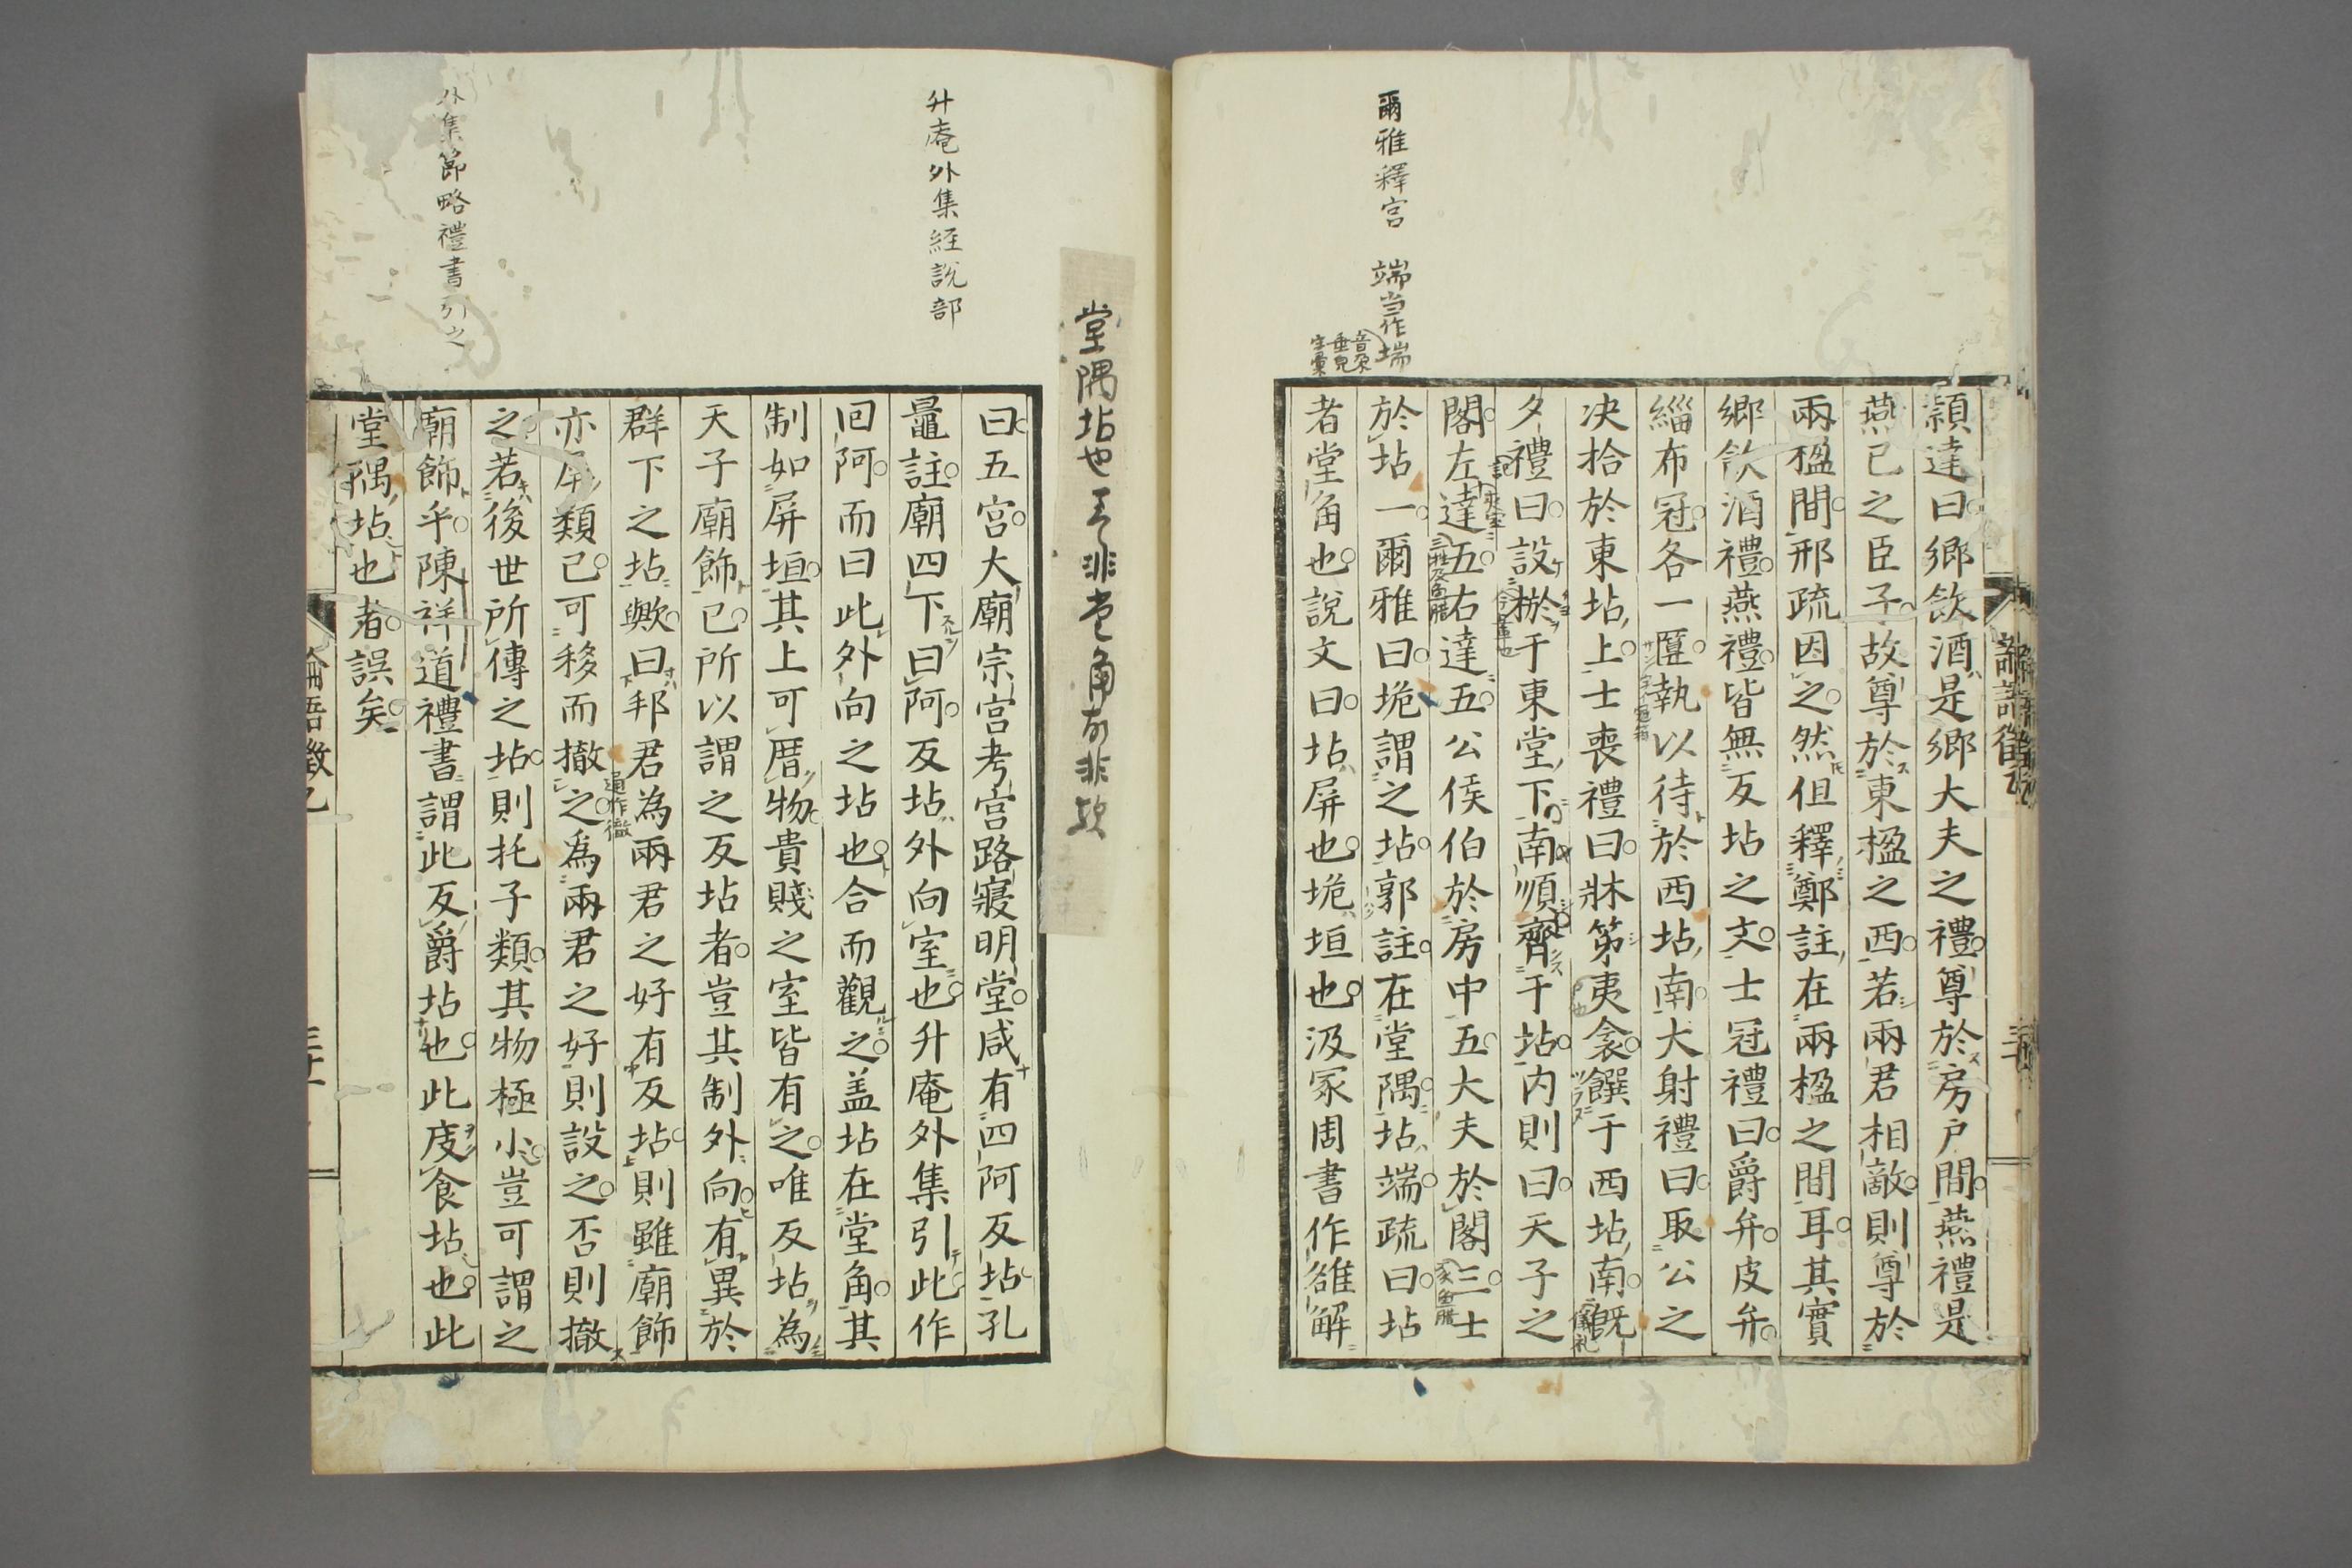 爾雅釋宮　端当作㙐
音朶
垂皃
字彙
穎達曰鄉飲酒是鄉大夫之禮尊於房戶間燕禮是
燕已之臣子故尊於東楹之西若兩君相敵則尊於
兩楹間邢疏因之然但釋鄭註在兩楹之間耳其實
鄉飲酒禮燕禮皆無反坫之文士冠禮曰爵弁皮弁
緇布冠各一匴執以待於西坫南大射禮曰取公之
决拾於東坫上士喪禮曰牀笫夷衾饌于西坫南既
夕禮曰設棜于東堂下南順齊于坫内則曰天子之
閣左達五右達五公侯伯於房中五大夫於閣三士
於坫一爾雅曰垝謂之坫郭註在堂隅坫端疏曰坫
者堂角也說文曰坫屏也垝垣也汲冢周書作雒解
堂隅坫也
升庵外集経說部
外集節略禮書引之
曰五宮大廟宗宮考宮路寢明堂咸有四阿反坫孔
鼂註廟四下曰阿反坫外向室也升庵外集引此作
回阿而曰此外向之坫也合而觀之盖坫在堂角其
制如屏垣其上可厝物貴賤之室皆有之唯反坫為
天子廟飾已所以謂之反坫者豈其制外向有異於
群下之坫歟曰邦君為兩君之好有反坫則雖廟飾
亦屏類已可移而撤之爲兩君之好則設之否則撤
之若後世所傳之坫則托子類其物極小豈可謂之
廟飾乎陳祥道禮書謂此反爵坫也此庋食坫也此
堂隅坫也者誤矣
論語徵乙
三十一